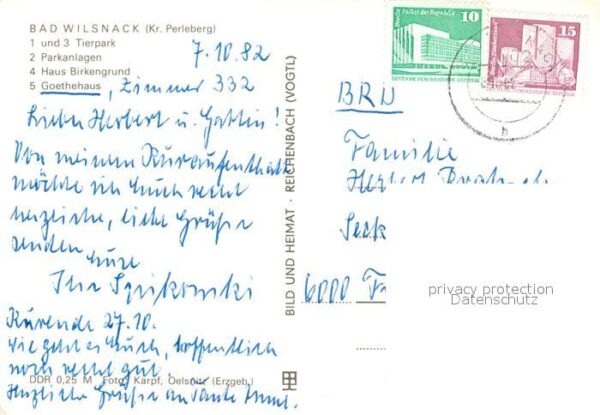 BAD WILSNACK (Kr. Perleberg)
1 und 3 Tierpark
2 Parkanlagen
4 Haus Birkengrund
5 Goethehaus, Zimmer 332
7.10.82
Lieber Herbert u. Gattin!
Von meinem Kuraufenthalt
möchte ich Euch recht
herzliche, liebe Grüße
senden
Eure
Kurende 27.10.
Wie geht es Euch, hoffentlich
noch recht gut.
Herzliche Grüße an Tante
DDR 0,25 M Foto: Karpf, Oelsnitz (Erzgeb.)
BILD UND HEIMAT · REICHENBACH (VOGTL)
Berlin Palast der Republik
10
DEUTSCHE DEMOKRATISCHE REPUBLIK
15
b
BRD
Familie
Herbert
6000 F
privacy protection
Datenschutz